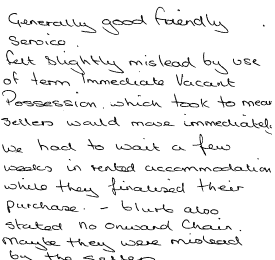 Generally good friendly
service.
felt slightly mislead by use
of term Immediate Vacant
Possession, which took to mean
sellers would move immediately
we had to wait a few
weeks in rented accommodation
while they finalised their
purchase. - blurb also
stated no onward chain.
Maybe they were mislead
by the seller